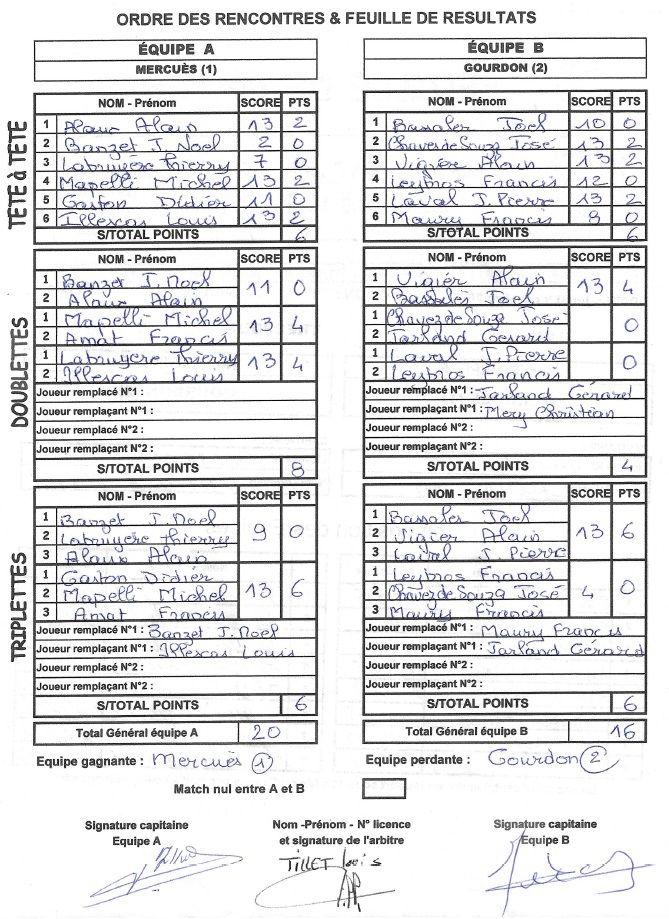 ORDRE DES RENCONTRES & FEUILLE DE RESULTATS
ÉQUIPE A
MERCUÈS (1)
TÊTE à TÊTE
NOM - Prénom SCORE PTS
1 Alaux Alain 13 2
2 Banzet J. Noel 2 0
3 Labruyère Thierry 7 0
4 Mapelli Michel 13 2
5 Gaston Didier 11 0
6 Illescas Louis 13 2
S/TOTAL POINTS 6
DOUBLETTES
1 Banzet J. Noel 11 0
2 Alaux Alain
1 Mapelli Michel 13 4
2 Amat Francis
1 Labruyère Thierry 13 4
2 Illescas Louis
Joueur remplacé N°1 :
Joueur remplaçant N°1 :
Joueur remplacé N°2 :
Joueur remplaçant N°2 :
S/TOTAL POINTS 8
TRIPLETTES
NOM - Prénom SCORE PTS
1 Banzet J. Noel 9 0
2 Labruyère Thierry
3 Alaux Alain
1 Gaston Didier 13 6
2 Mapelli Michel
3 Amat Francis
Joueur remplacé N°1 : Banzet J. Noel
Joueur remplaçant N°1 : Illescas Louis
Joueur remplacé N°2 :
Joueur remplaçant N°2 :
S/TOTAL POINTS 6
Total Général équipe A 20
ÉQUIPE B
GOURDON (2)
NOM - Prénom SCORE PTS
1 Bassaler Joel 10 0
2 Chavez de Souza José 13 2
3 Vigier Alain 13 2
4 Leymos Francis 12 0
5 Laval J. Pierre 13 2
6 Maury Francis 8 0
S/TOTAL POINTS 6
1 Vigier Alain 13 4
2 Bassaler Joel
1 Chavez de Souza José 0
2 Tarland Gérard
1 Laval J. Pierre 0
2 Leymos Francis
Joueur remplacé N°1 : Tarland Gérard
Joueur remplaçant N°1 : Mery Christian
Joueur remplacé N°2 :
Joueur remplaçant N°2 :
S/TOTAL POINTS 4
NOM - Prénom SCORE PTS
1 Bassaler Joel 13 6
2 Vigier Alain
3 Laval J. Pierre
1 Leymos Francis 4 0
2 Chavez de Souza José
3 Maury Francis
Joueur remplacé N°1 : Maury Francis
Joueur remplaçant N°1 : Tarland Gérard
Joueur remplacé N°2 :
Joueur remplaçant N°2 :
S/TOTAL POINTS 6
Total Général équipe B 16
Equipe gagnante : Mercuès 1
Equipe perdante : Gourdon 2
Match nul entre A et B
Signature capitaine
Equipe A
Nom -Prénom - N° licence
et signature de l'arbitre
TILLET Louis
Signature capitaine
Equipe B